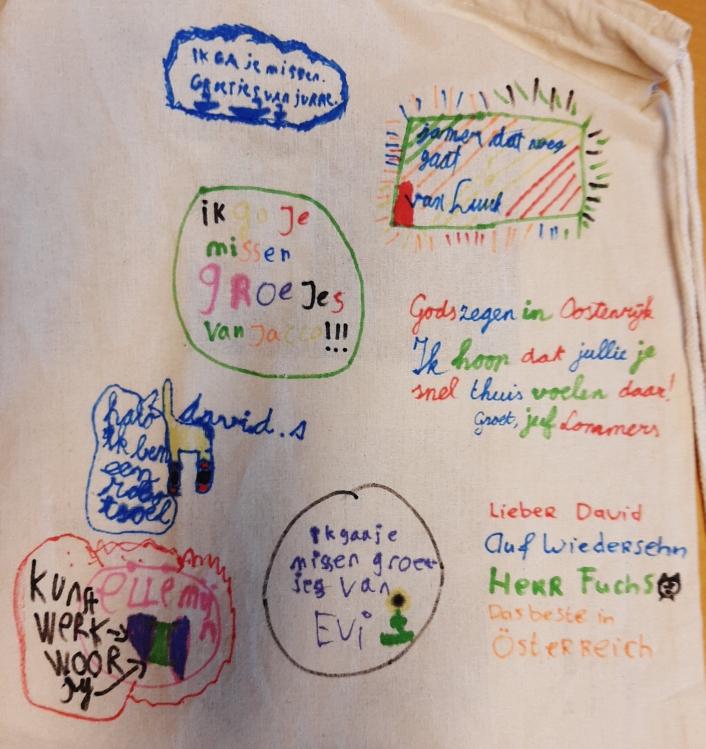 Ik GA je missen.
Groetjes van jurre.
jamer dat weg
gaat
van Luuk
ik ga Je
missen
gROeJes
van Jacco!!!
Godszegen in Oostenrijk
Ik hoop dat jullie je
snel thuis voelen daar!
Groet, juf Lommers
halo
ik ben
een
david.s
Ik gaa je
missen groet
jes van
Evi
Lieber David
Auf Wiedersehn
Herr Fuchs
Das beste in
ÖsteRReich
ellemijn
Kunst
WERK
WOOR